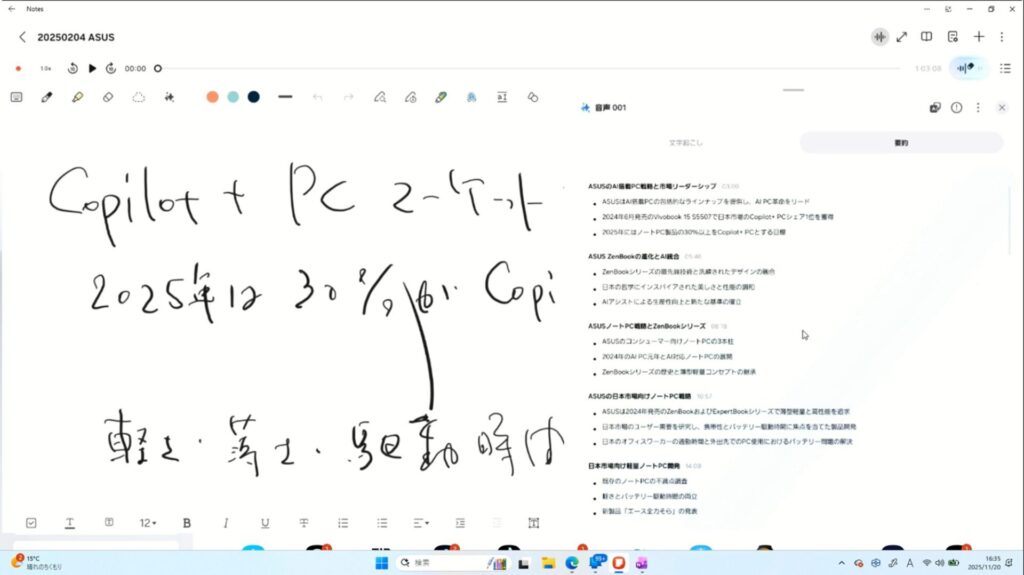 Notes
20250204 ASUS
1.0x
00:00
1:03:08
音声 001
文字起こし
要約
Copilot + PC マーケット
2025年は 30%が Copi
軽さ・薄さ・駆動時は
ASUSのAI搭載PC戦略と市場リーダーシップ 03:00
ASUSはAI搭載PCの包括的なラインナップを提供し、AI PC革命をリード
2024年6月発売のVivobook 15 S5507で日本市場のCopilot+ PCシェア1位を獲得
2025年にはノートPC製品の30%以上をCopilot+ PCとする目標
ASUS ZenBookの進化とAI統合 05:46
ZenBookシリーズの最先端技術と洗練されたデザインの融合
日本の哲学にインスパイアされた美しさと性能の調和
AIアシストによる生産性向上と新たな基準の確立
ASUSノートPC戦略とZenBookシリーズ 08:18
ASUSのコンシューマー向けノートPCの3本柱
2024年のAI PC元年とAI対応ノートPCの展開
ZenBookシリーズの歴史と薄型軽量コンセプトの継承
ASUSの日本市場向けノートPC戦略 10:57
ASUSは2024年発売のZenBookおよびExpertBookシリーズで薄型軽量と高性能を追求
日本市場のユーザー需要を研究し、携帯性とバッテリー駆動時間に焦点を当てた製品開発
日本のオフィスワーカーの通勤時間と外出先でのPC使用におけるバッテリー問題の解決
日本市場向け軽量ノートPC開発 14:09
既存のノートPCの不満点調査
軽さとバッテリー駆動時間の両立
新製品「エース全力そら」の発表
12
B
I
U
T
15°C
晴れのちくもり
検索
99+
A
16:35
2025/11/20